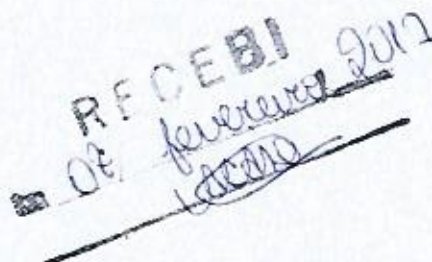 RECEBI
Em 07, fevereiro 2012